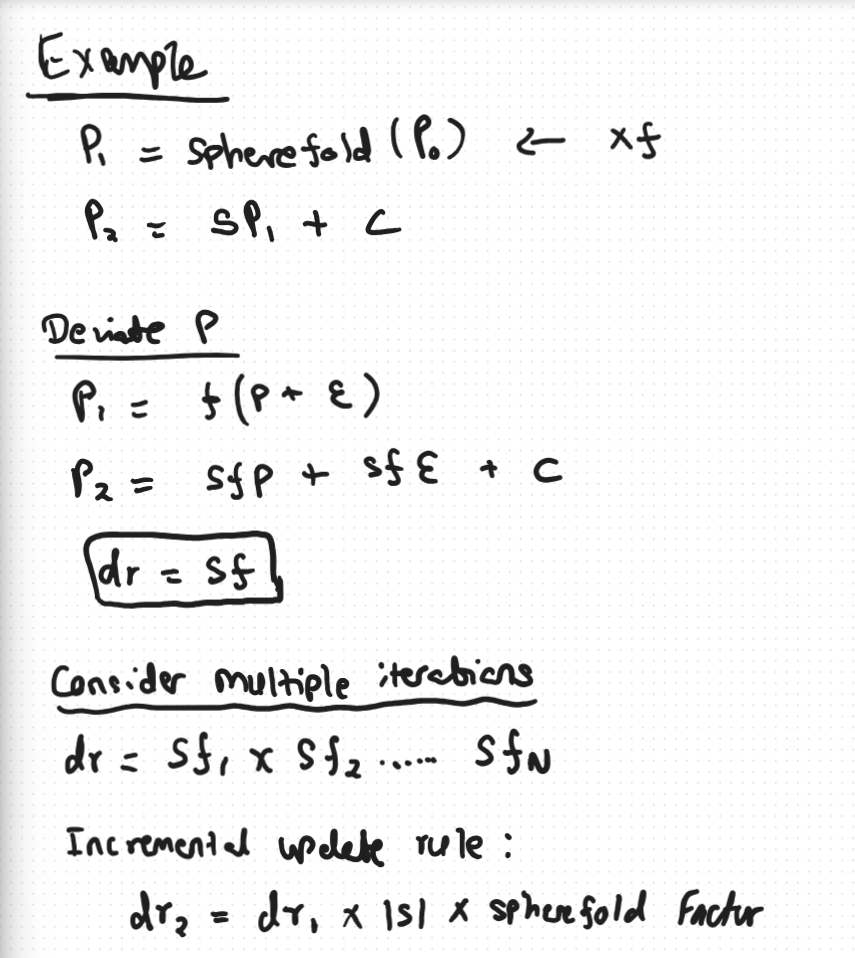 Example
P₁ = spherefold (P₀) ← xf
P₂ = SP₁ + C
Deviate P
P₁ = f(P + ε)
P₂ = sfP + sfε + C
dr = sf
Consider multiple iterations
dr = Sf₁ x Sf₂ ...... SfN
Incremental update rule :
dr₂ = dr₁ x |s| x spherefold Factor